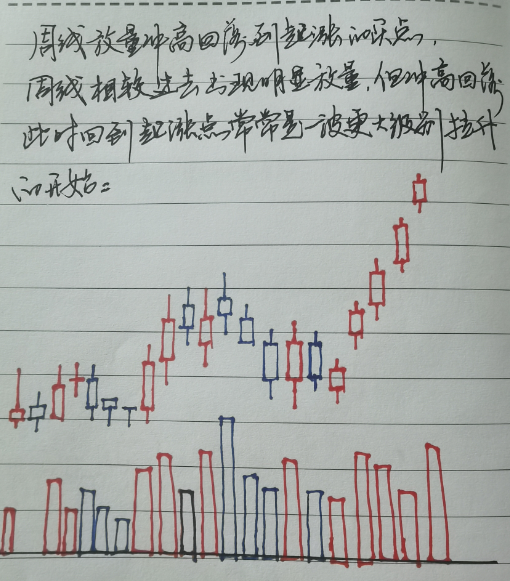 周线放量冲高回落到起涨的买点,
周线相较过去出现明显放量,但冲高回落
此时回到起涨点常常是一波更大级别拉升
的开始: